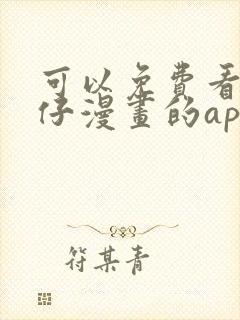 可以免费看
仔漫畫的ap
符某青